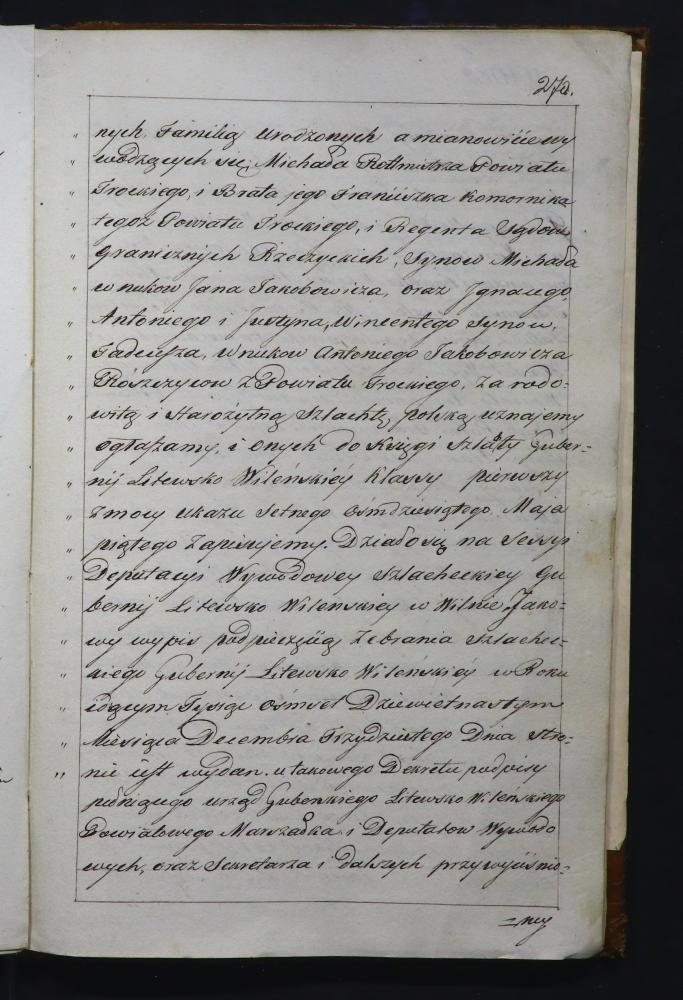 270.
" nych Familią urodzonych a mianowicie wy
" wodzących się, Michała Rottmistrza Powiatu
" Trockiego, i Brata jego Franciszka Komornika
" tegoż Powiatu Trockiego, i Regenta Sądow
" Granicznych Rzeczyckich, Synow Michała
" wnukow Jana Jakobowicza, oraz Jgnacego,
" Antoniego i Justyna, Wincentego Synow,
" Tadeusza, wnukow Antoniego Jakobowicza
" Rószczycow z Powiatu Trockiego, za rodo=
" witą i starożytną Szlachtę polską uznajemy
" ogłaszamy, i onych do Księgi Szlachty Guber=
" nij Litewsko Wileńskiéy klassy pierwszy
" zmocy ukazu setnego ośmdziesiątego Maja
" piątego zapisujemy. Działo się na Sessyi
" Deputacyi Wywodowey Szlacheckiey Gu
" bernij Litewsko Wilenskiey w Wilnie, Jako=
" wy wypis pod pieczęcią zebrania szlachec=
" kiego Gubernij Litewsko Wileńskiéy w Roku
" idącym Tysiąc ośmset Dziewietnastym
" Miesiąca Decembra Trzydziestego Dnia stro=
" nie jest wydan. u takowego Dekretu podpisy
pełniącego urząd Guberskiego Litewsko Wileńskiego
Powiatowego Marszałka i Deputatow Wywodo
wych, oraz Sekretarza i dalszych przywyiśnio=
=ney